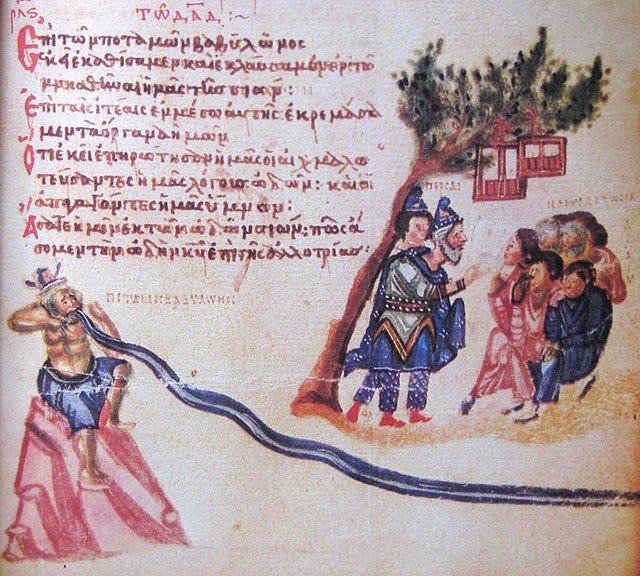 ΤΩ ΔΑΔ :~
Επὶ τῶν ποταμῶν βαβυλῶνος
ἐκεῖ ἐκαθίσαμεν καὶ ἐκλαύσαμεν· ἐν τῶ
ἡμᾶς τῆς σιών:
Ἐπὶ ταῖς ἰτέαις ἐμ μέσω αὐτῆς ἐκρεμάσα
μεν τὰ ὄργανα ἡμῶν
Ὅτι ἐκεῖ ἐπηρώτησαν ἡμᾶς οἱ αἰχμαλω
τεύσαντες ἡμᾶς λόγους ὠδῶν: καὶ οἱ
ἀπαγαγόντες ἡμᾶς ὕμνον:
Ἄσατε ἡμῖν ἐκ τῶν ὠδῶν σιών: πῶς ἄ
σομεν τὴν ὠδὴν κυ ἐπὶ γῆς ἀλλοτρίας: